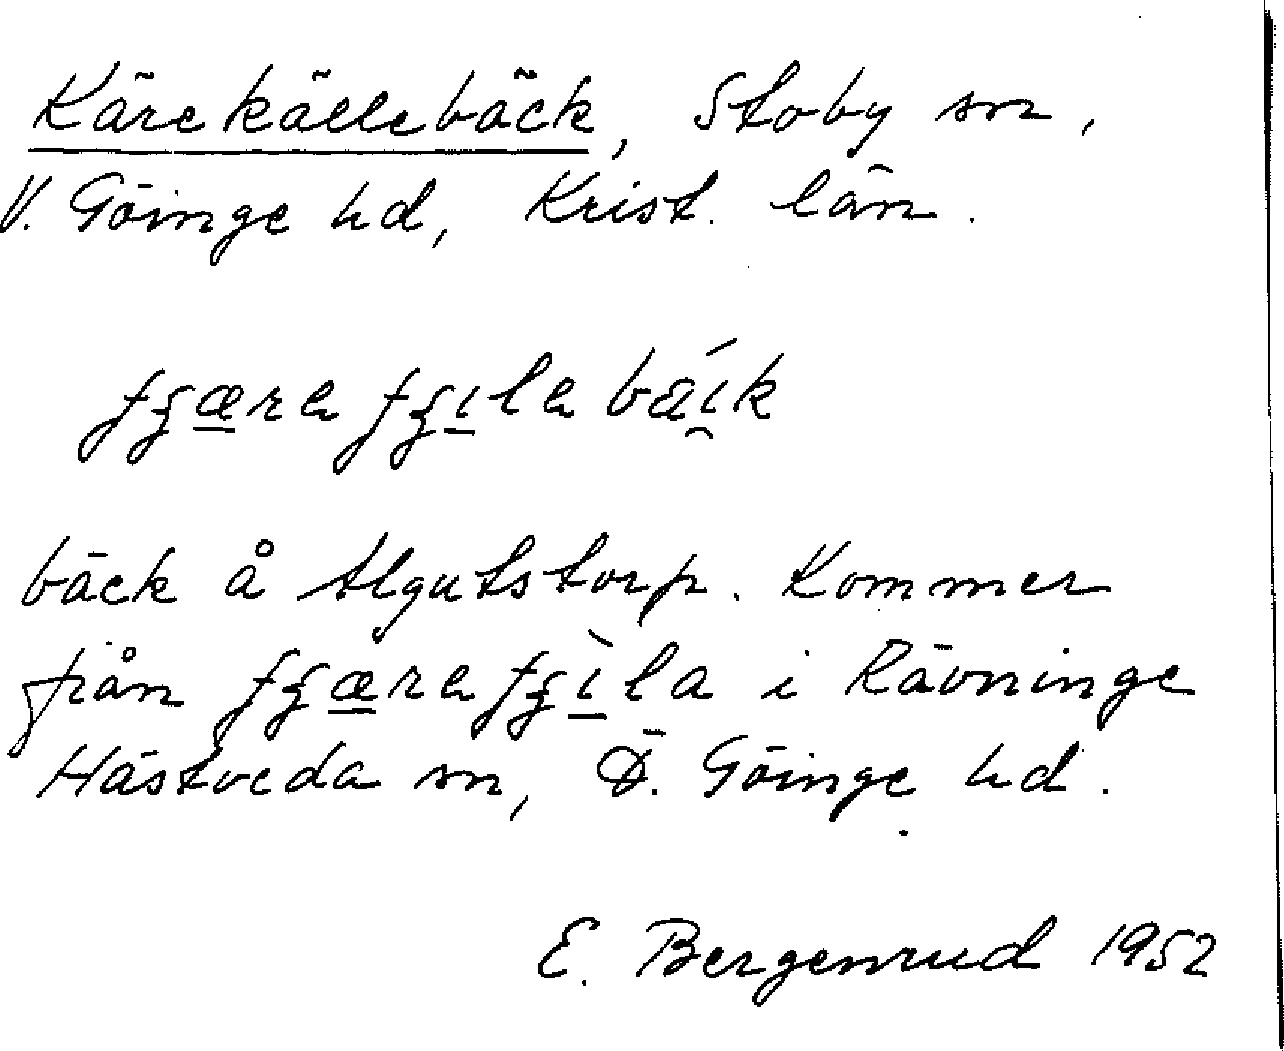 Kärekällebäck, Stoby sn,
V. Göinge hd, Krist. län.
bäck å Algutstorp. Kommer
från i Rävninge
Hästveda sn, Ö. Göinge hd.
E. Bergenrud 1952